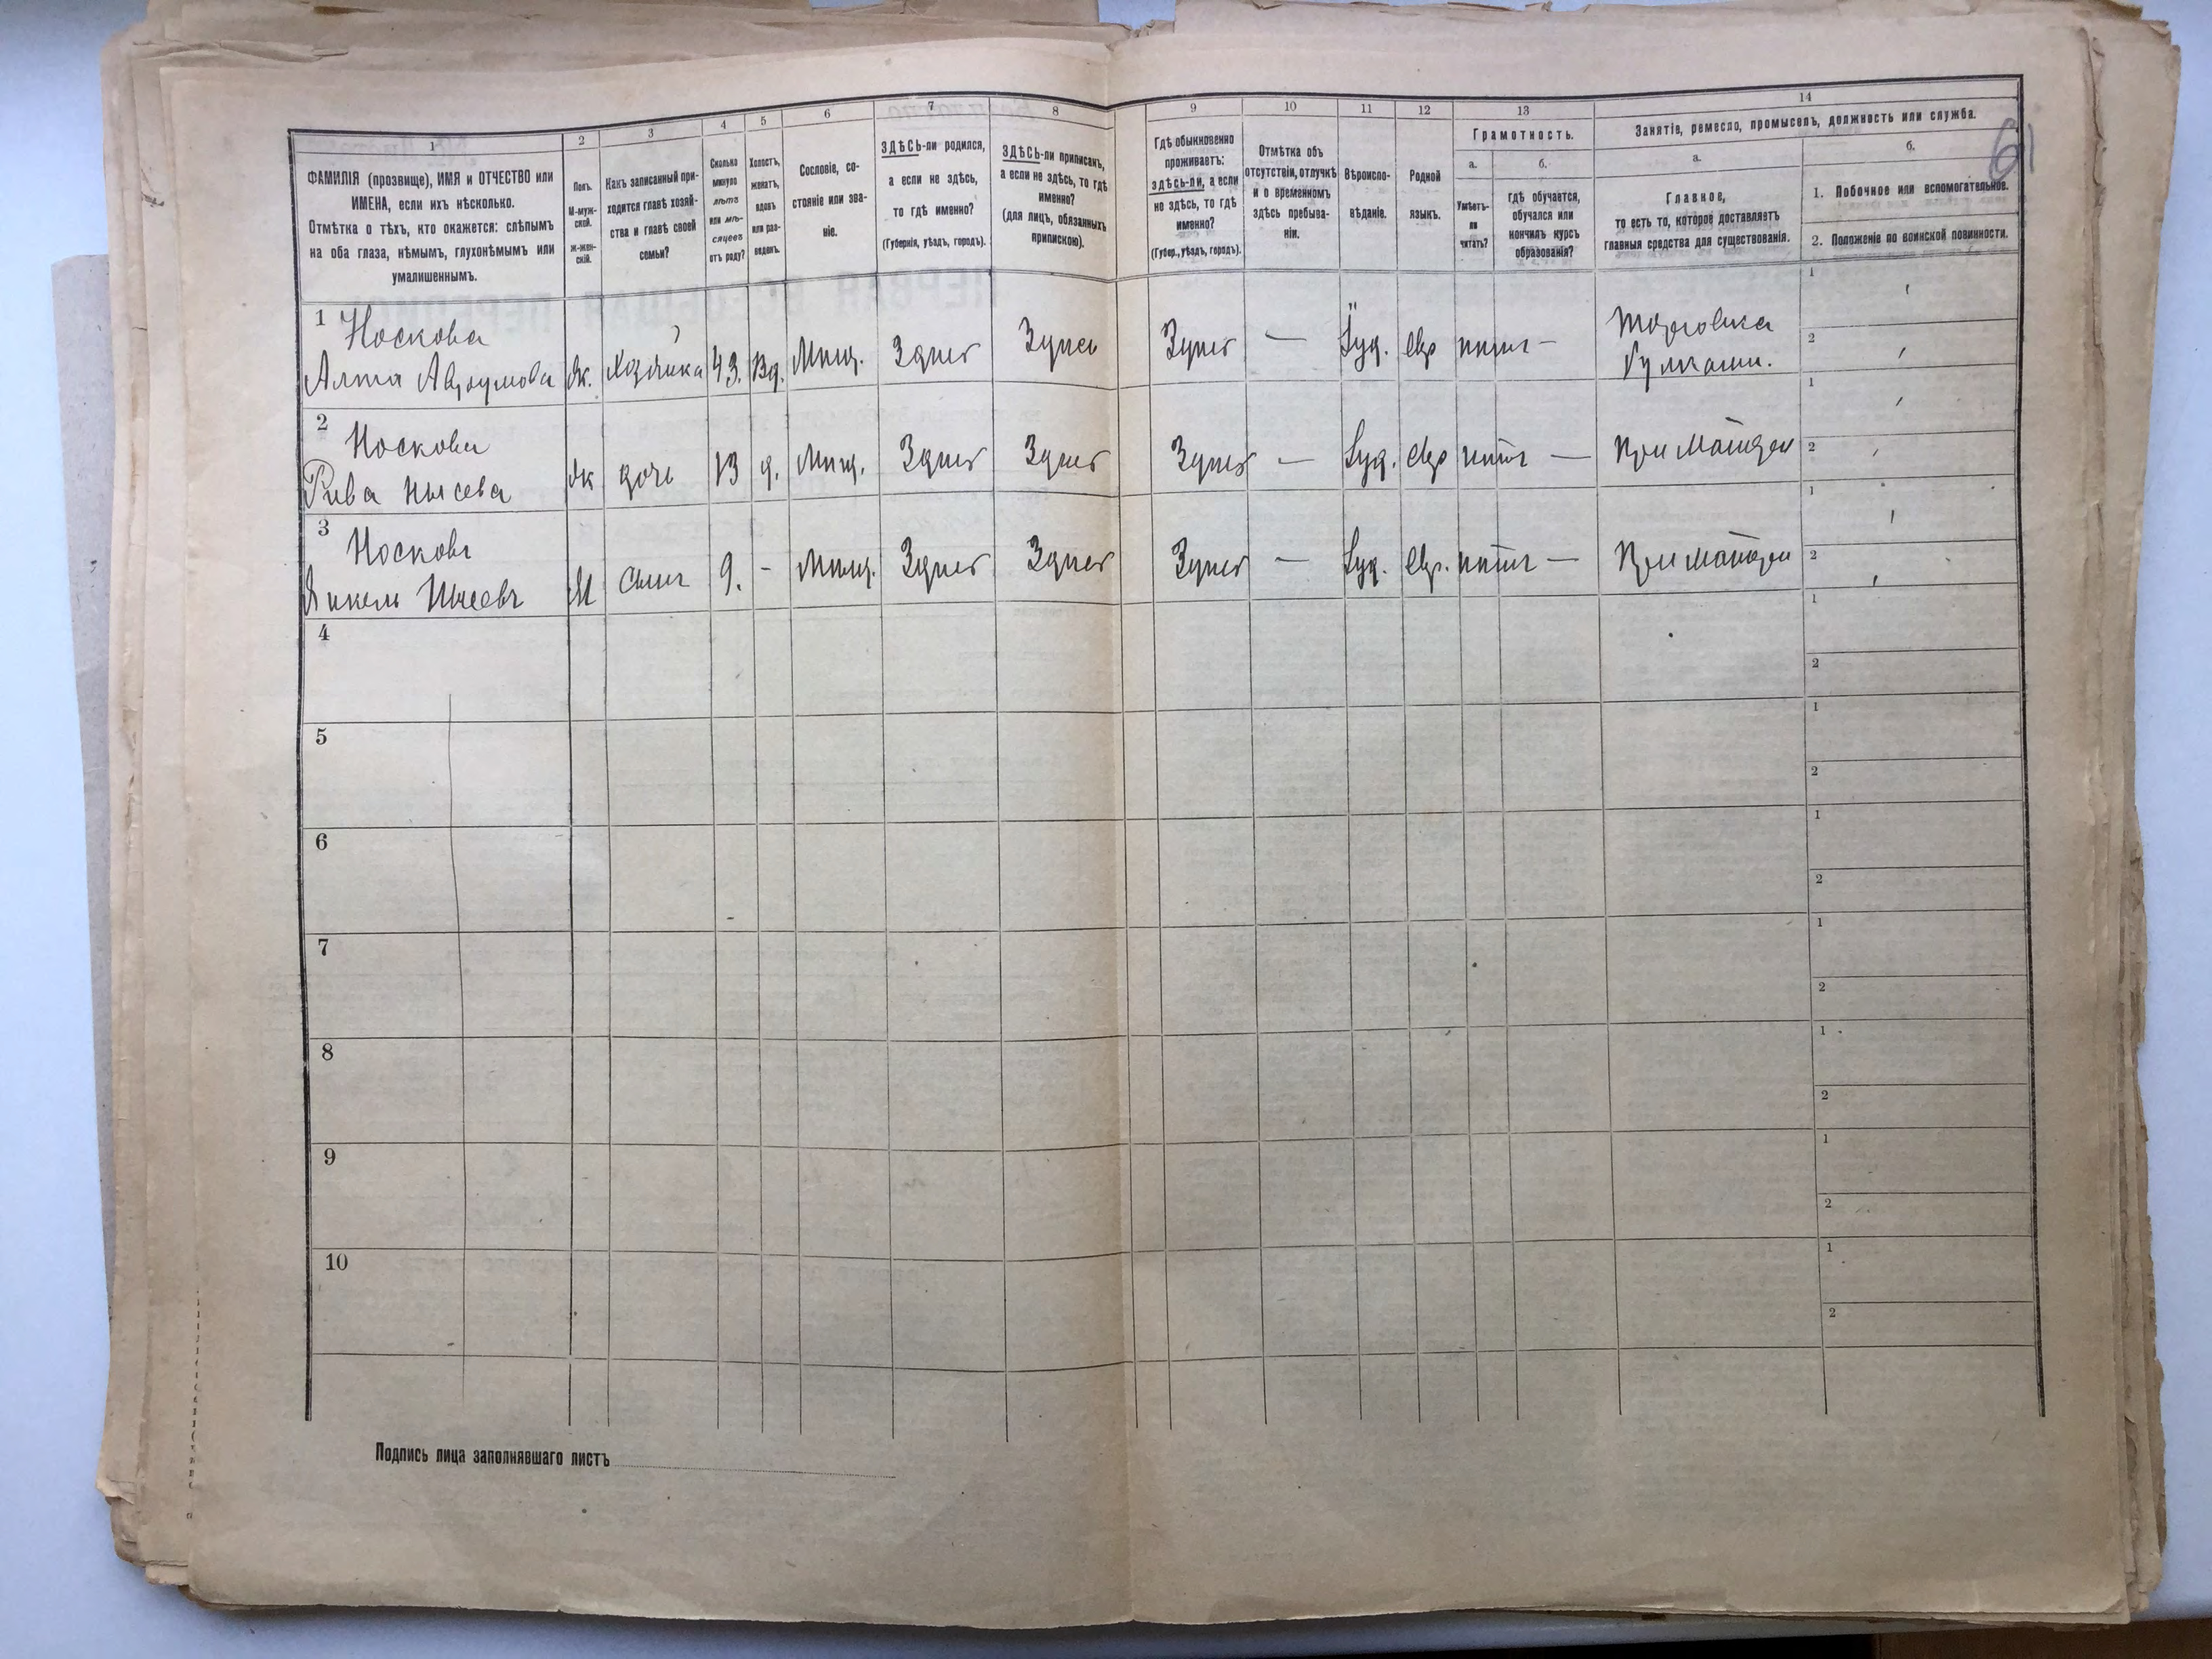 61
1
2
3
4
5
6
7
8
9
10
11
12
13
14
ФАМИЛІЯ (прозвище), ИМЯ и ОТЧЕСТВО или
ИМЕНА, если ихъ нѣсколько.
Отмѣтка о тѣхъ, кто окажется: слѣпымъ
на оба глаза, нѣмымъ, глухонѣмымъ или
умалишеннымъ.
Полъ.
М-муж-
ской.
ж-жен-
скій.
Какъ записанный при-
ходится главѣ хозяй-
ства и главѣ своей
семьи?
Сколько
минуло
лѣтъ
или мѣ-
сяцевъ
отъ роду?
Холостъ,
женатъ,
вдовъ
или раз-
веденъ.
Сословіе, со-
стояніе или зва-
ніе.
ЗДѢСЬ-ли родился,
а если не здѣсь,
то гдѣ именно?
(Губернія, уѣздъ, городъ).
ЗДѢСЬ-ли приписанъ,
а если не здѣсь, то гдѣ
именно?
(для лицъ, обязанныхъ
припискою).
Гдѣ обыкновенно
проживаетъ:
здѣсь-ли, а если
не здѣсь, то гдѣ
именно?
(Губер., уѣздъ, городъ).
Отмѣтка объ
отсутствіи, отлучкѣ
и о временномъ
здѣсь пребыва-
ніи.
Вѣроиспо-
вѣданіе.
Родной
языкъ.
Грамотность.
а.
Умѣетъ-
ли
читать?
б.
гдѣ обучается,
обучался или
кончилъ курсъ
образованія?
Занятіе, ремесло, промыселъ, должность или служба.
а.
Главное,
то есть то, которое доставляетъ
главныя средства для существованія.
б.
1. Побочное или вспомогательное.
2. Положеніе по воинской повинности.
1 Носкова
Ж. Хозяйка 43. Вд. Мѣщ. Здѣсь Здѣсь Здѣсь — Іуд. Евр нѣтъ — Торговка
булками.
1
2
2 Носкова
Рива ж дочь 13 д. Мѣщ. Здѣсь Здѣсь Здѣсь — Іуд. Евр нѣтъ — При матери
1
2
3 Носковъ
Янкель М сынъ 9. - Мѣщ. Здѣсь Здѣсь Здѣсь — Іуд. Евр. нѣтъ — При матери
1
2
4
1
2
5
1
2
6
1
2
7
1
2
8
1
2
9
1
2
10
1
2
Подпись лица заполнявшаго листъ